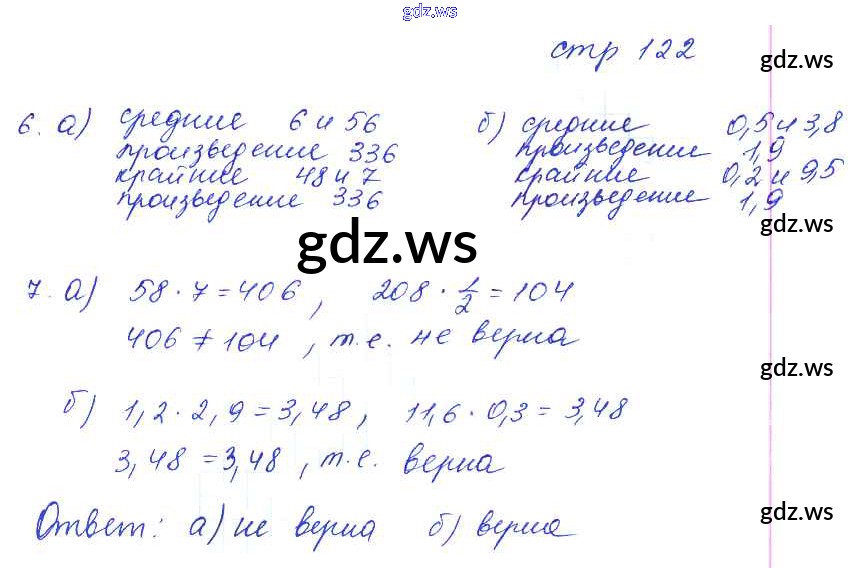 gdz.ws
стр 122
gdz.ws
6. а) средние 6 и 56
произведение 336
крайние 48 и 7
произведение 336
б) средние 0,5 и 3,8
произведение 1,9
крайние 0,2 и 9,5
произведение 1,9
gdz.ws
gdz.ws
7. а) 58 · 7 = 406, 208 · 1/2 = 104
406 ≠ 104, т.е. не верна
gdz.ws
б) 1,2 · 2,9 = 3,48, 11,6 · 0,3 = 3,48
3,48 = 3,48, т.е. верна
Ответ: а) не верна б) верна
gdz.ws